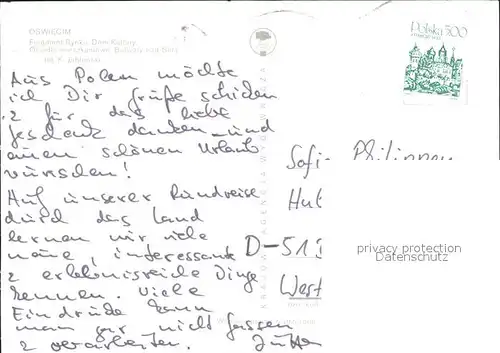 OŚWIĘCIM
Fragment Rynku. Dom Kultury
fot. K. Jabłoński
Polska 5.00
Aus Polen möchte
ich Dir Grüße schicken
2 für das liebe
Geschenk danken – und
einen schönen Urlaub
wünschen!
Auf unserer Rundreise
durch das Land
lernen wir viele
neue, interessante
2 erlebnisreiche Dinge
kennen. Viele
Eindrücke kann
man gar nicht fassen
2 verarbeiten.
Jutta
KRAJOWA AGENCJA WYDAWNICZA
Sofi
Philippen
Hu
D-51
West
privacy protection
Datenschutz